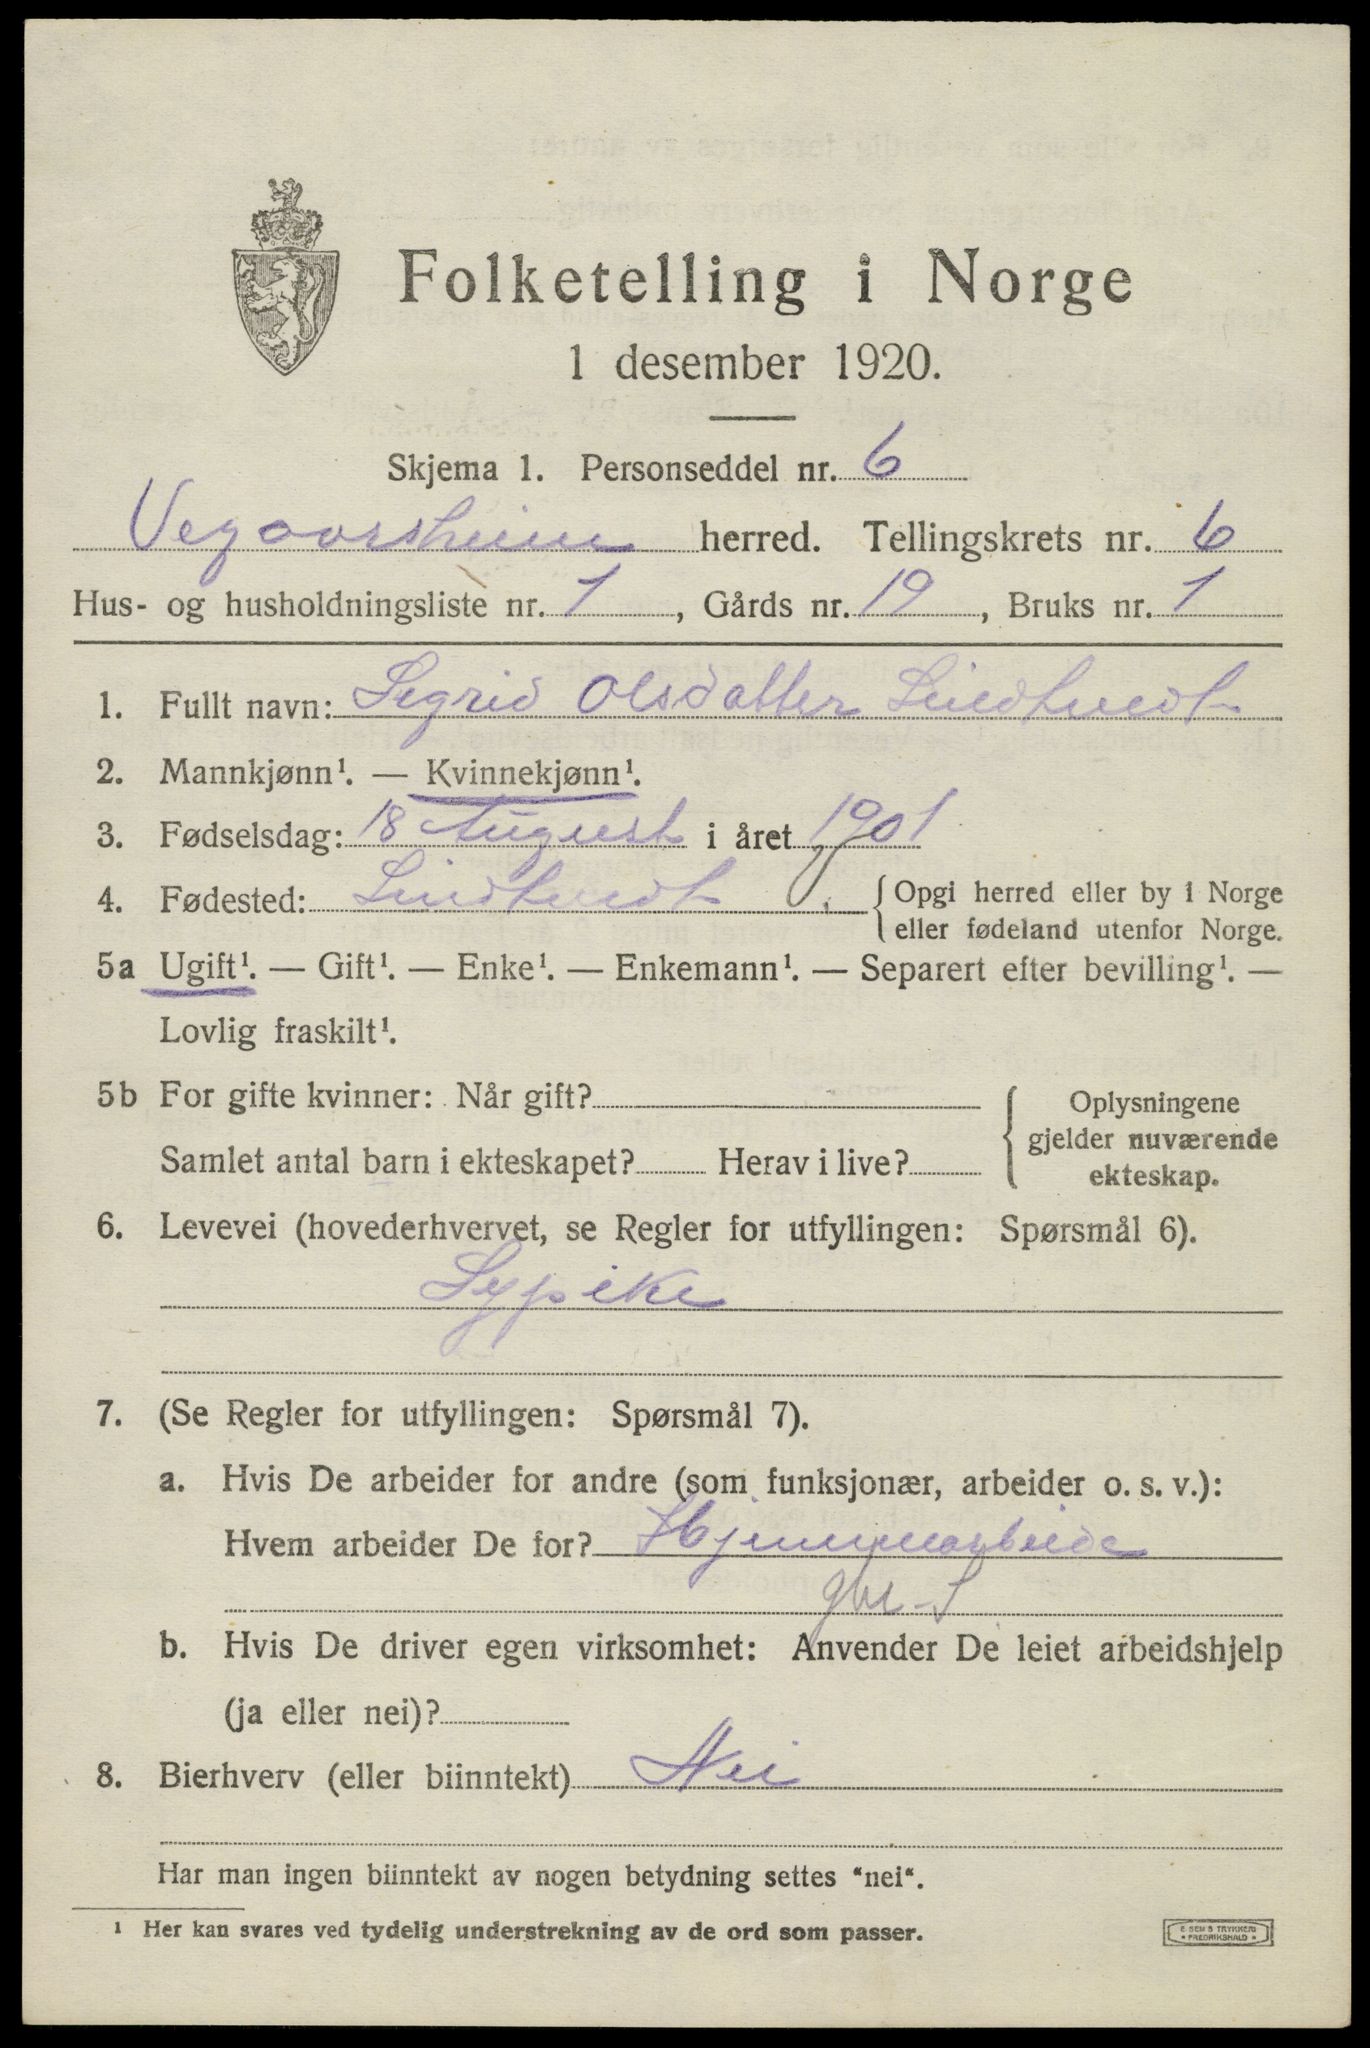 Folketelling i Norge
1 desember 1920.
Skjema 1. Personseddel nr. 6
Vegaarsheim herred. Tellingskrets nr. 6
Hus- og husholdningsliste nr. 1, Gårds nr. 19, Bruks nr. 1
1. Fullt navn: Sigrid Olsdatter Lindtvedt
2. Mannkjønn¹. — Kvinnekjønn¹.
3. Fødselsdag: 18 August i året 1901
4. Fødested: Lindtvedt { Opgi herred eller by i Norge
eller fødeland utenfor Norge.
5a Ugift¹. — Gift¹. — Enke¹. — Enkemann¹. — Separert efter bevilling¹. —
Lovlig fraskilt¹.
5b For gifte kvinner: Når gift?
Samlet antal barn i ekteskapet? Herav i live?
{ Oplysningene
gjelder nuværende
ekteskap.
6. Levevei (hovederhvervet, se Regler for utfyllingen: Spørsmål 6).
Sypike
7. (Se Regler for utfyllingen: Spørsmål 7).
a. Hvis De arbeider for andre (som funksjonær, arbeider o. s. v.):
Hvem arbeider De for? Hjemmearbeide
b. Hvis De driver egen virksomhet: Anvender De leiet arbeidshjelp
(ja eller nei)?
8. Bierhverv (eller biinntekt) Nei
Har man ingen biinntekt av nogen betydning settes “nei“.
¹ Her kan svares ved tydelig understrekning av de ord som passer.
E. SEM'S TRYKKERI
FREDRIKSHALD